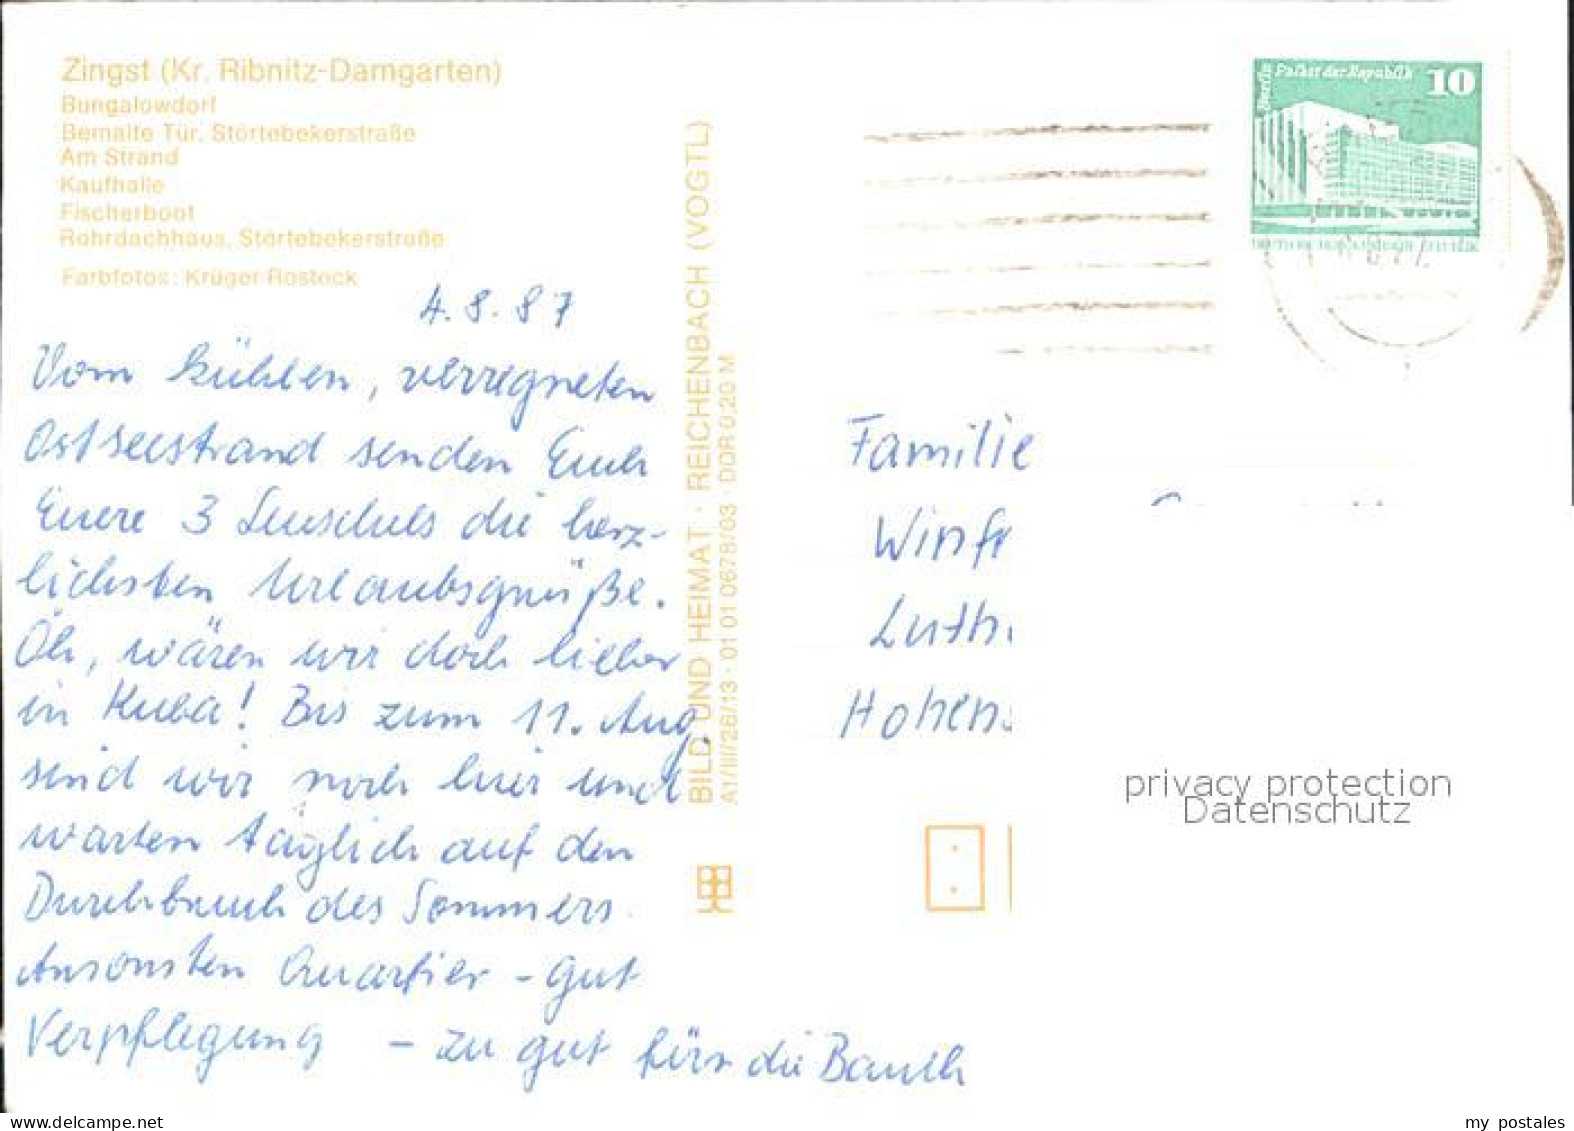 Zingst (Kr. Ribnitz-Damgarten)
Bungalowdorf
Bemalte Tür, Störtebekerstraße
Am Strand
Kaufhalle
Fischerboot
Rohrdachhaus, Störtebekerstraße
Farbfotos: Krüger Rostock
4.8.87
Vom kühlen, verregneten
Ostseestrand senden Euch
Euere 3 die herz-
lichsten Urlaubsgrüße.
Oh, wären wir doch lieber
in Kuba! Bis zum 11. Aug.
sind wir noch hier und
warten täglich auf den
Durchbruch des Sommers.
Ansonsten Quartier - gut
Verpflegung - zu gut für die Bauch
BILD UND HEIMAT · REICHENBACH (VOGTL)
A1/III/26/13 · 01 01 0678/03 · DDR 0,20 M
Berlin Palast der Republik 10
Familie
Winfr
Luth
Hohens
privacy protection
Datenschutz
my postales